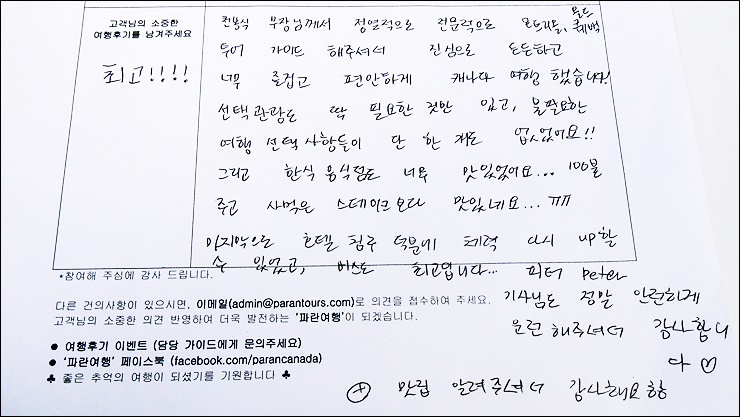 고객님의 소중한
여행후기를 남겨주세요
최고!!!!
전용식 부장님께서 정열적으로 전문적으로 몬트리올, 올드 퀘벡
투어 가이드 해주셔서 진심으로 든든하고
너무 즐겁고 편안하게 캐나다 여행 했습니다!
선택관광도 딱 필요한 것만 있고, 불필요한
여행 선택사항들이 단 한 개도 없었어요!!
그리고 한식 음식점도 너무 맛있었어요... 100불
주고 사먹은 스테이크보다 맛있네요... ㅠㅠ
마지막으로 호텔 침구 덕분에 체력 다시 up할
수 있었고, 버스도 최고입니다... 피터 Peter
기사님도 정말 안전하게
운전 해주셔서 감사합니
다 ♡
*참여해 주심에 감사 드립니다.
다른 건의사항이 있으시면, 이메일(admin@parantours.com)로 의견을 접수하여 주세요.
고객님의 소중한 의견 반영하여 더욱 발전하는 '파란여행'이 되겠습니다.
● 여행후기 이벤트 (담당 가이드에게 문의주세요)
● '파란여행' 페이스북 (facebook.com/parancanada)
♣ 좋은 추억의 여행이 되셨기를 기원합니다 ♣
⊕ 맛집 알려주셔서 감사해요